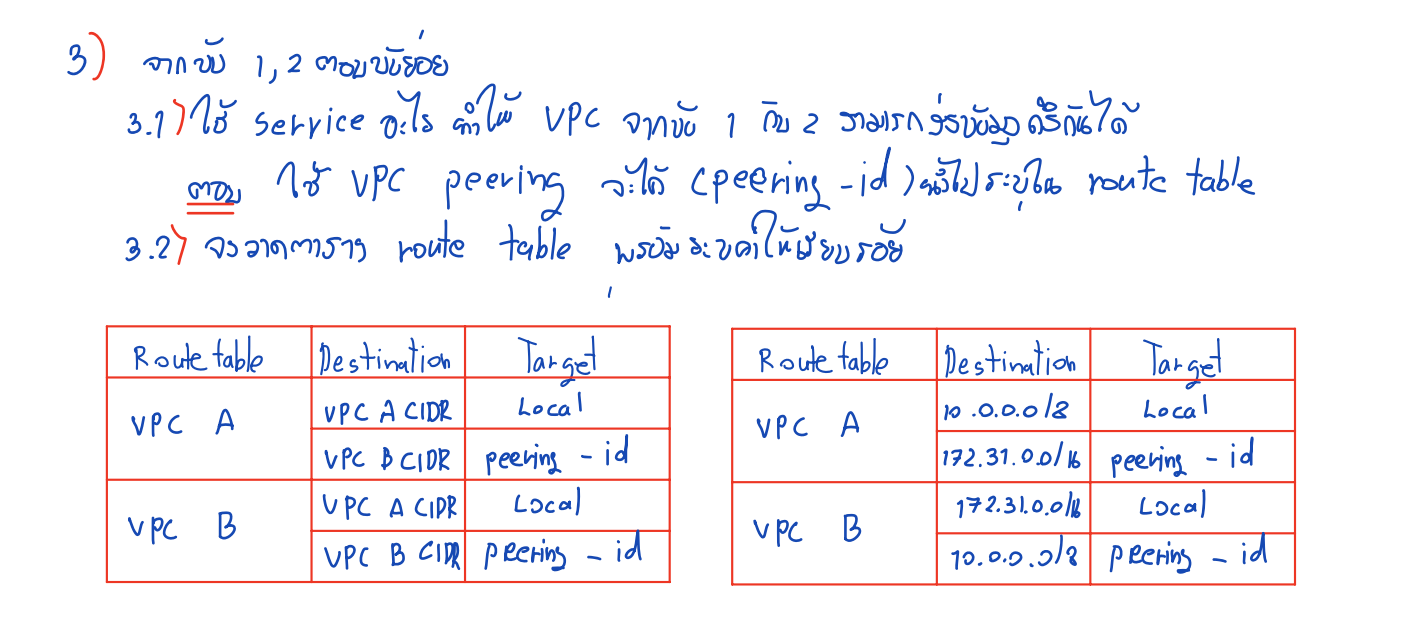 3) จากข้อ 1,2 ตอบข้อย่อย
3.1) ใช้ service อะไร ทำให้ VPC จากข้อ 1 กับ 2 สามารถส่งข้อมูลถึงกันได้
ตอบ ใช้ VPC peering จะได้ (peering -id) นำไประบุใน route table
3.2) จงวาดตาราง route table พร้อมระบุค่าให้เรียบร้อย
Route table Destination Target
VPC A VPC A CIDR Local
VPC B CIDR peering - id
VPC B VPC A CIDR Local
VPC B CIDR peering - id
Route table Destination Target
VPC A 10.0.0.0/8 Local
172.31.0.0/16 peering - id
VPC B 172.31.0.0/16 Local
10.0.0.0/8 peering - id